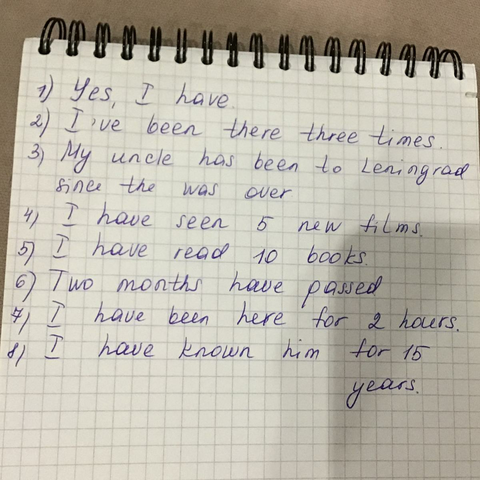 1) Yes, I have.
2) I've been there three times.
3) My uncle has been to Leningrad
since the was over
4) I have seen 5 new films.
5) I have read 10 books.
6) Two months have passed
7) I have been here for 2 hours.
8) I have known him for 15
years.